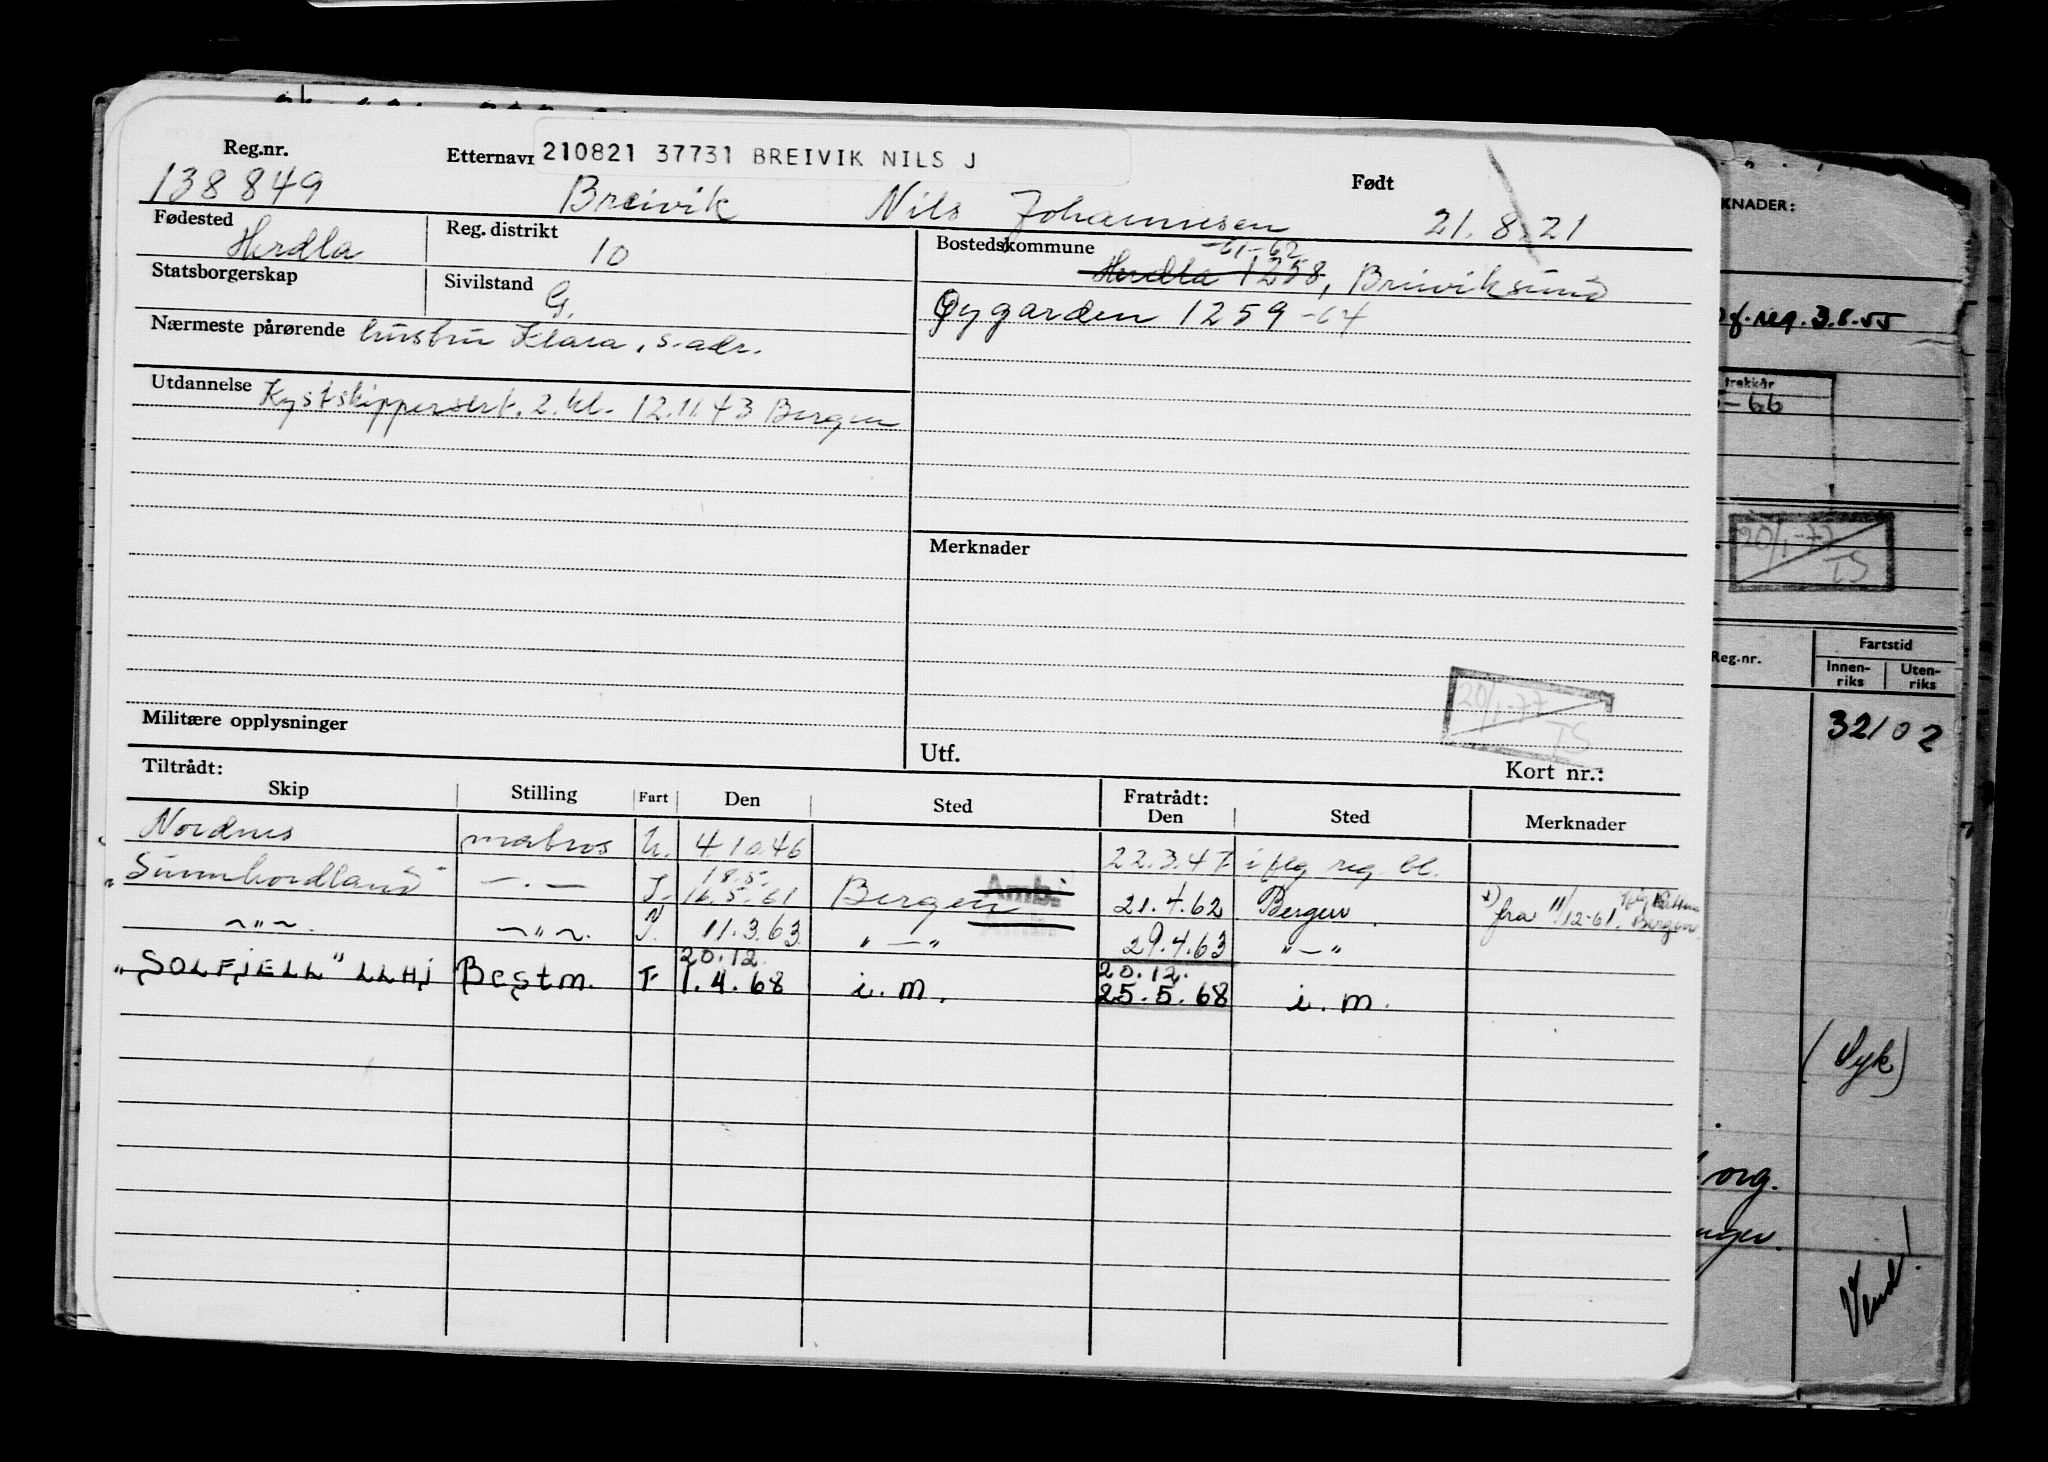 Reg.nr. Etternavn 210821 37731 BREIVIK NILS J Født
138849 Breivik Nils Johannesen 21.8.21
Fødested Herdla Reg. distrikt 10
Statsborgerskap Sivilstand G.
Nærmeste pårørende hustru Klara, s. adr.
Utdannelse Kystskippersert. 2. kl. 12.11.43 Bergen
Bostedskommune -61-62
Herdla 1258, Breiviksund
Øygarden 1259 -64
Merknader
20/1-77
TS
Militære opplysninger
Utf. Kort nr.:
Tiltrådt: Fratrådt:
Skip Stilling Fart Den Sted Den Sted Merknader
Nordnes matros U. 4.10.46 22.3.47 iflg reg. bl.
18.5.
"Sunnhordland" —.— I. 16.5.61 Bergen 21.4.62 Bergen fra 11/12-61. Bergen
~"~. ~"~. N. 11.3.63 "—" 29.4.63 "—"
20.12. 20.12.
"SOLFJELL" LLHJ Bestm. F 1.4.68 i.m. 25.5.68 i.m.
KNADER:
reg. 3.8.55
trekkår
-66
20/1-77
TS
Reg.nr. Fartstid
Innen-riks Uten-riks
32102
(Syk)
org.
Vend!